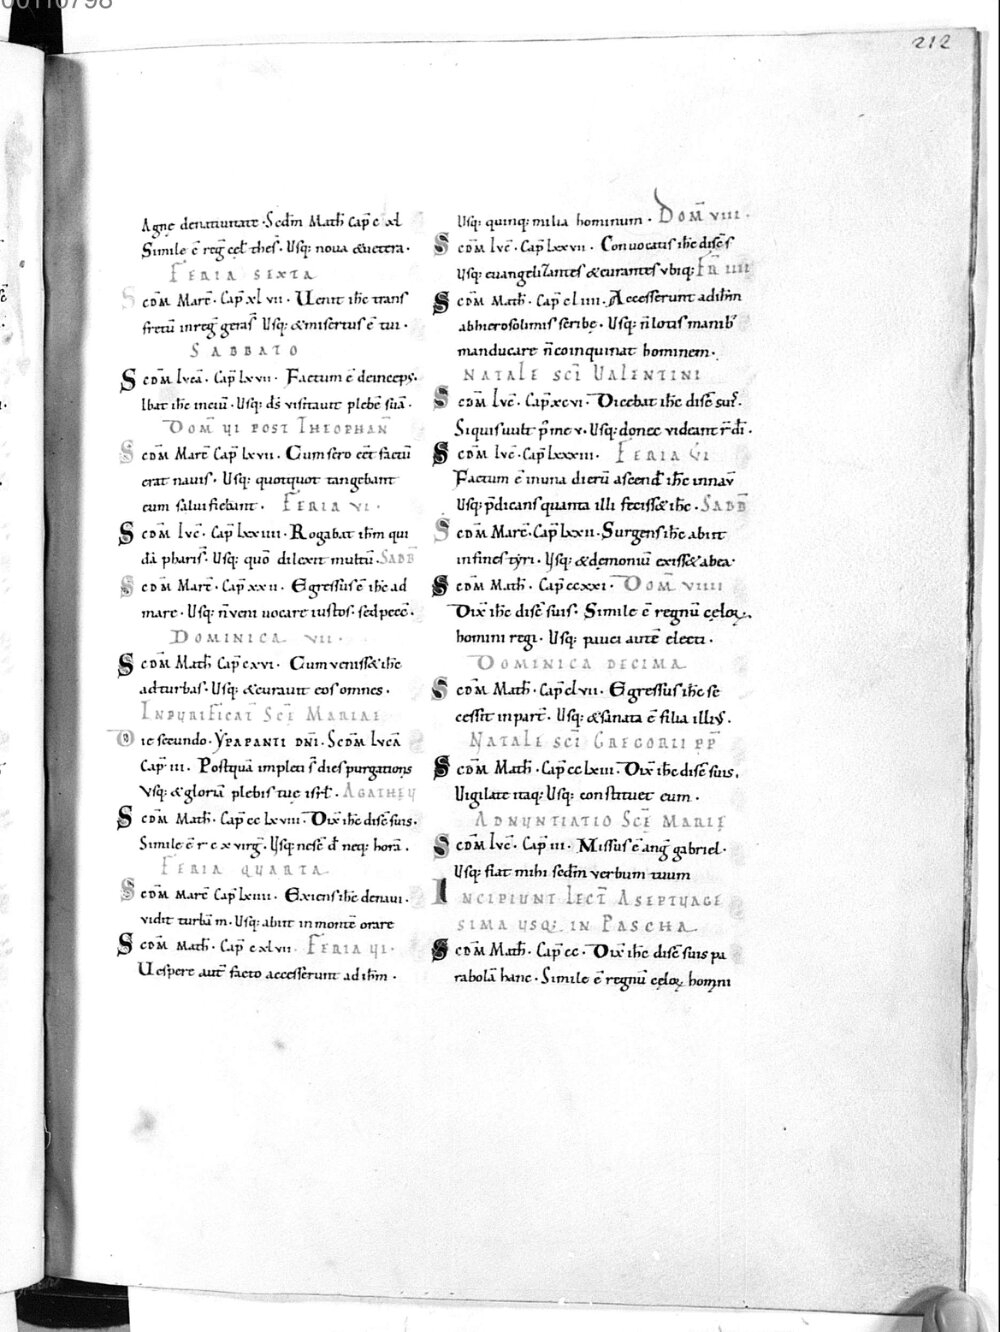 00110798
212
Agne denatiuitate · Scdm̄ Math̄ Cap̄ c xl
Simile ē reḡ cel̄ thes̄ · Usq: noua & uetera ·
FERIA SEXTA
SCDM̄ Marc̄ · Cap̄ xl vii · Uenit ih̄c trans
fretū in reḡ geras̄ Usq: & misertus ē tui ·
SABBATO
SCDM̄ lucā · Cap̄ lxvii · Factum ē deinceps ·
Ibat ih̄c in ciū · Usq: ds̄ visitauit plebē suā ·
DOM̄ VI POST THEOPHAN̄
SCDM̄ Marc̄ Cap̄ lxvii · Cum sero eēt factū
erat nauis · Usq: quotquot tangebant
eum salui fiebant · FERIA VI ·
SCDM̄ lvc̄ · Cap̄ lxxiiii · Rogabat ih̄m qui
dā pharis̄ · Usq: quō dilexit multū · SABB̄
SCDM̄ Marc̄ · Cap̄ xxii · Egressus ē ih̄c ad
mare · Usq: n̄ veni uocare iustos · sed pecc̄ ·
DOMINICA VII ·
SCDM̄ Math̄ Cap̄ cxvi · Cum veniss& ih̄c
ad turbas · Usq: & curauit eos omnes ·
IN PURIFICAT̄ SC̄E MARIAE
Die secundo · YPAPANTI DN̄I · SCDM̄ LVCĀ
Cap̄ iii · Postquā impleti s̄ dies purgationis
Vsq: & gloriā plebis tuę isrl̄ · AGATHEN
SCDM̄ Math̄ · Cap̄ cc lxviii · Dix̄ ih̄c disc̄ suis ·
Simile ē r c x virḡ · Usq: nesc̄ d̄ neq: horā ·
FERIA QUARTA
SCDM̄ Marc̄ Cap̄ lxiiii · Exiens ih̄c de naui ·
vidit turbā m · Usq: abiit in montē orare
SCDM̄ Math̄ · Cap̄ c xl vii · FERIA VI ·
Uespere aut̄ facto accesserunt ad ih̄m ·
Usq: quinq: milia hominum · DOM̄ VIII ·
SCDM̄ lvc̄ · Cap̄ lxxvii · Conuocatis ih̄c disc̄s
Usq: euangelizantes & curantes vbiq: FR̄ IIII
SCDM̄ Math̄ · Cap̄ cl iiii · Accesserunt ad ih̄m
ab hierosolimis scribę · Usq: n̄ lotis manib;
manducare n̄ coinquinat hominem ·
NATALE SC̄I UALENTINI
SCDM̄ lvc̄ · Cap̄ xcvi · Dicebat ih̄c disc̄ suis̄ ·
Siquis uult p̄ me v · Usq: donec videant r̄ dī ·
SCDM̄ lvc̄ · Cap̄ lxxxiii · FERIA VI
Factum ē in una dierū ascend̄ ih̄c in nauī
Usq: p̄dicans quanta illi feciss& ih̄c · SABB̄
SCDM̄ Marc̄ · Cap̄ lxxii · Surgens ih̄c abiit
in fines tyri · Usq: & demoniū exiss& ab ea ·
SCDM̄ Math̄ · Cap̄ ccxxi · DOM̄ VIIII
Dix̄ ih̄c disc̄ suis · Simile ē regnū cęloꝝ,
homini regi · Usq: pauci autē electi ·
DOMINICA DECIMA
SCDM̄ Math̄ · Cap̄ cl vii · Egressus ih̄c se
cessit in part̄ · Usq: & sanata ē filia illius ·
NATALE SC̄I GREGORII PP̄
SCDM̄ Math̄ · Cap̄ cc lxiii · Dix̄ ih̄c disc̄ suis ·
Uigilate itaq: Usq: constituet eum ·
ADNUNTIATIO SC̄E MARIĘ
SCDM̄ lvc̄ · Cap̄ iii · Missus ē anḡ gabriel ·
Usq: fiat mihi scdm̄ verbum tuum
INCIPIUNT LECT̄ A SEPTUAGE
SIMA USQ: IN PASCHA ·
SCDM̄ Math̄ · Cap̄ cc · Dix̄ ih̄c disc̄ suis pa
rabolā hanc · Simile ē regnū cęloꝝ homini